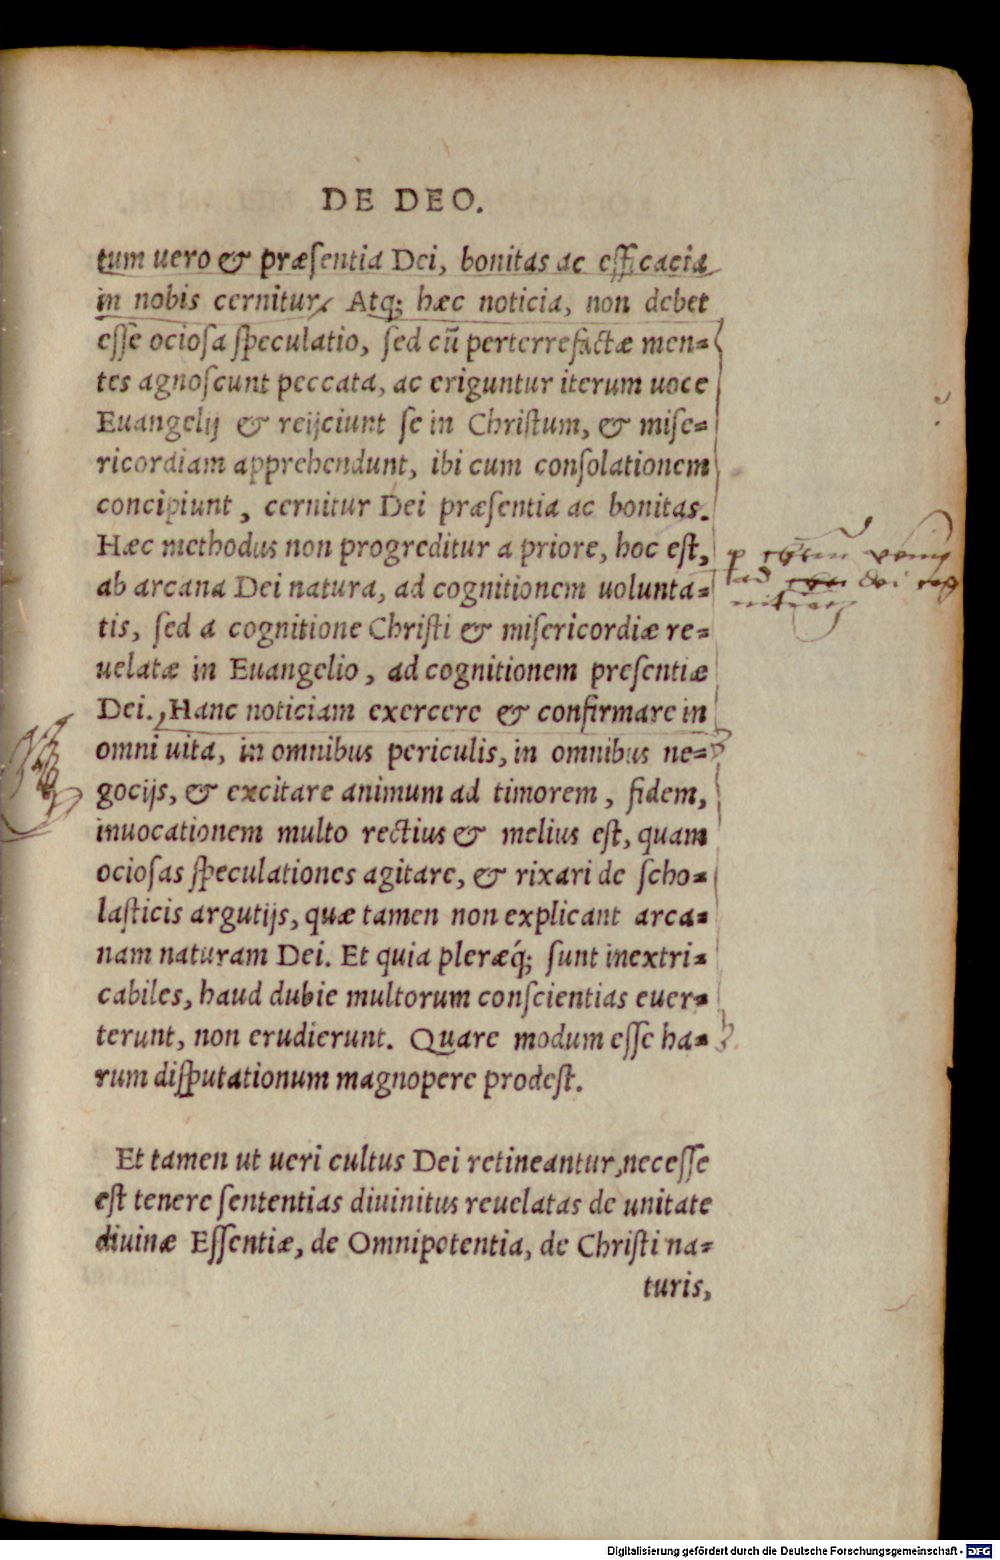 DE DEO.
tum uero & præſentia Dei, bonitas ac efficacia
in nobis cernitur. Atq; hæc noticia, non debet
eſſe ocioſa ſpeculatio, ſed cū perterrefactæ men-
tes agnoſcunt peccata, ac eriguntur iterum uoce
Euangelij & reijciunt ſe in Chriſtum, & miſe-
ricordiam apprehendunt, ibi cum conſolationem
concipiunt, cernitur Dei præſentia ac bonitas.
Hæc methodus non progreditur a priore, hoc eſt,
ab arcana Dei natura, ad cognitionem uolunta-
tis, ſed a cognitione Chriſti & miſericordiæ re-
uelatæ in Euangelio, ad cognitionem preſentiæ
Dei. Hanc noticiam exercere & confirmare in
omni uita, in omnibus periculis, in omnibus ne-
gocijs, & excitare animum ad timorem, fidem,
inuocationem multo rectius & melius eſt, quam
ocioſas ſpeculationes agitare, & rixari de ſcho-
laſticis argutijs, quæ tamen non explicant arca-
nam naturam Dei. Et quia pleræq́; ſunt inextri-
cabiles, haud dubie multorum conſcientias euer-
terunt, non erudierunt. Quare modum eſſe ha-
rum diſputationum magnopere prodeſt.
Et tamen ut ueri cultus Dei retineantur, neceſſe
eſt tenere ſententias diuinitus reuelatas de unitate
diuinæ Eſſentiæ, de Omnipotentia, de Chriſti na-
turis,
ad dei
Digitalisierung gefördert durch die Deutsche Forschungsgemeinschaft - DFG